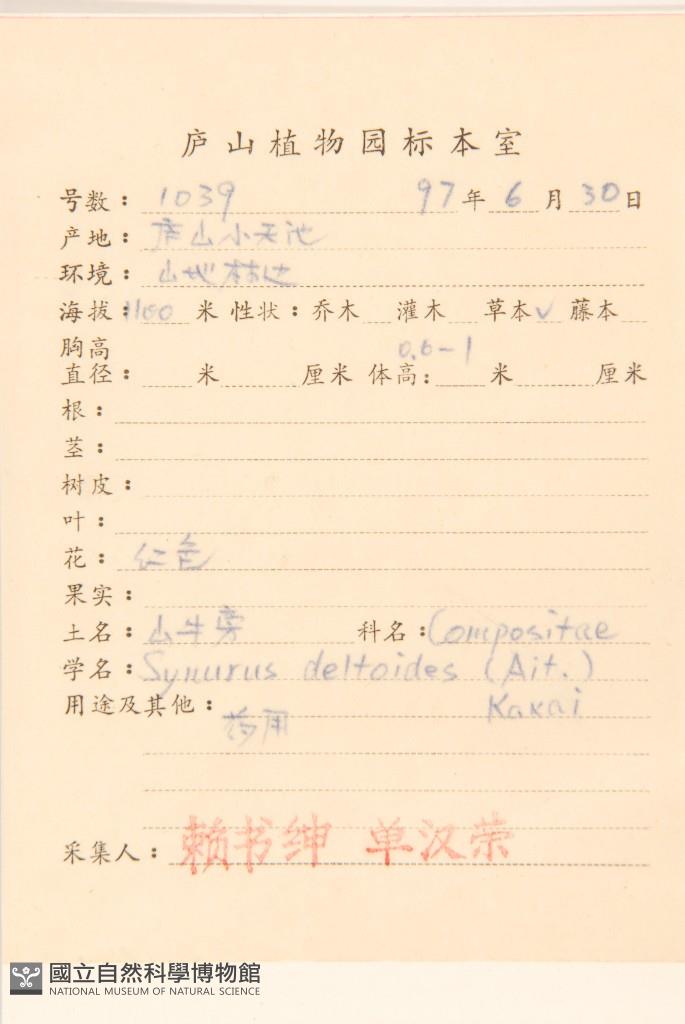 庐山植物园标本室
号数: 1039 97年6月30日
产地: 庐山小天池
环境: 山地林边
海拔: 1100 米 性状: 乔木 灌木 草本√ 藤本
胸高
直径: 米 厘米 体高: 0.6-1 米 厘米
根:
茎:
树皮:
叶:
花: 红色
果实:
土名: 山牛旁 科名: Compositae
学名: Synurus deltoides (Ait.)
Kakai
用途及其他: 药用
采集人: 赖书绅 单汉荣
國立自然科學博物館
NATIONAL MUSEUM OF NATURAL SCIENCE